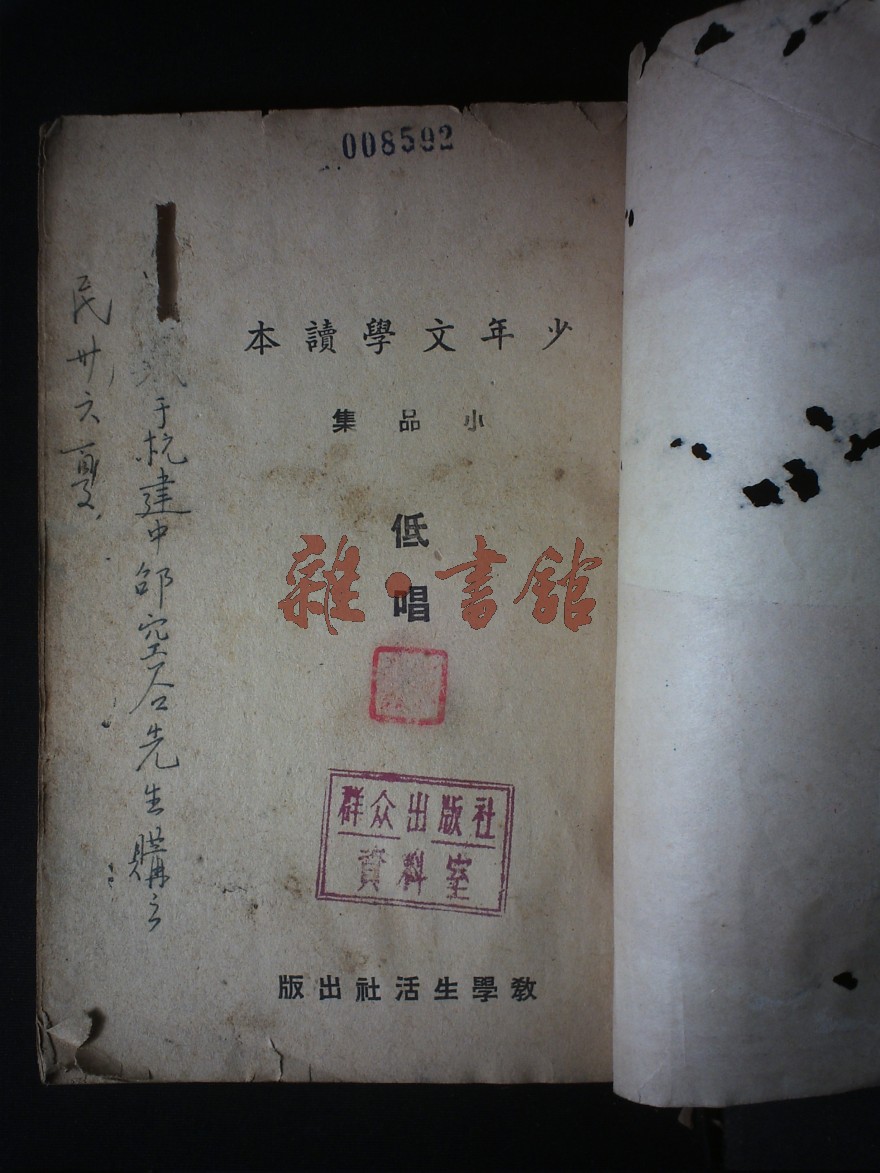 008592
少年文學讀本
小品集
低唱
雜·書館
群众出版社
資料室
教學生活社出版
于杭建中邵空谷先生購之
民卅六夏